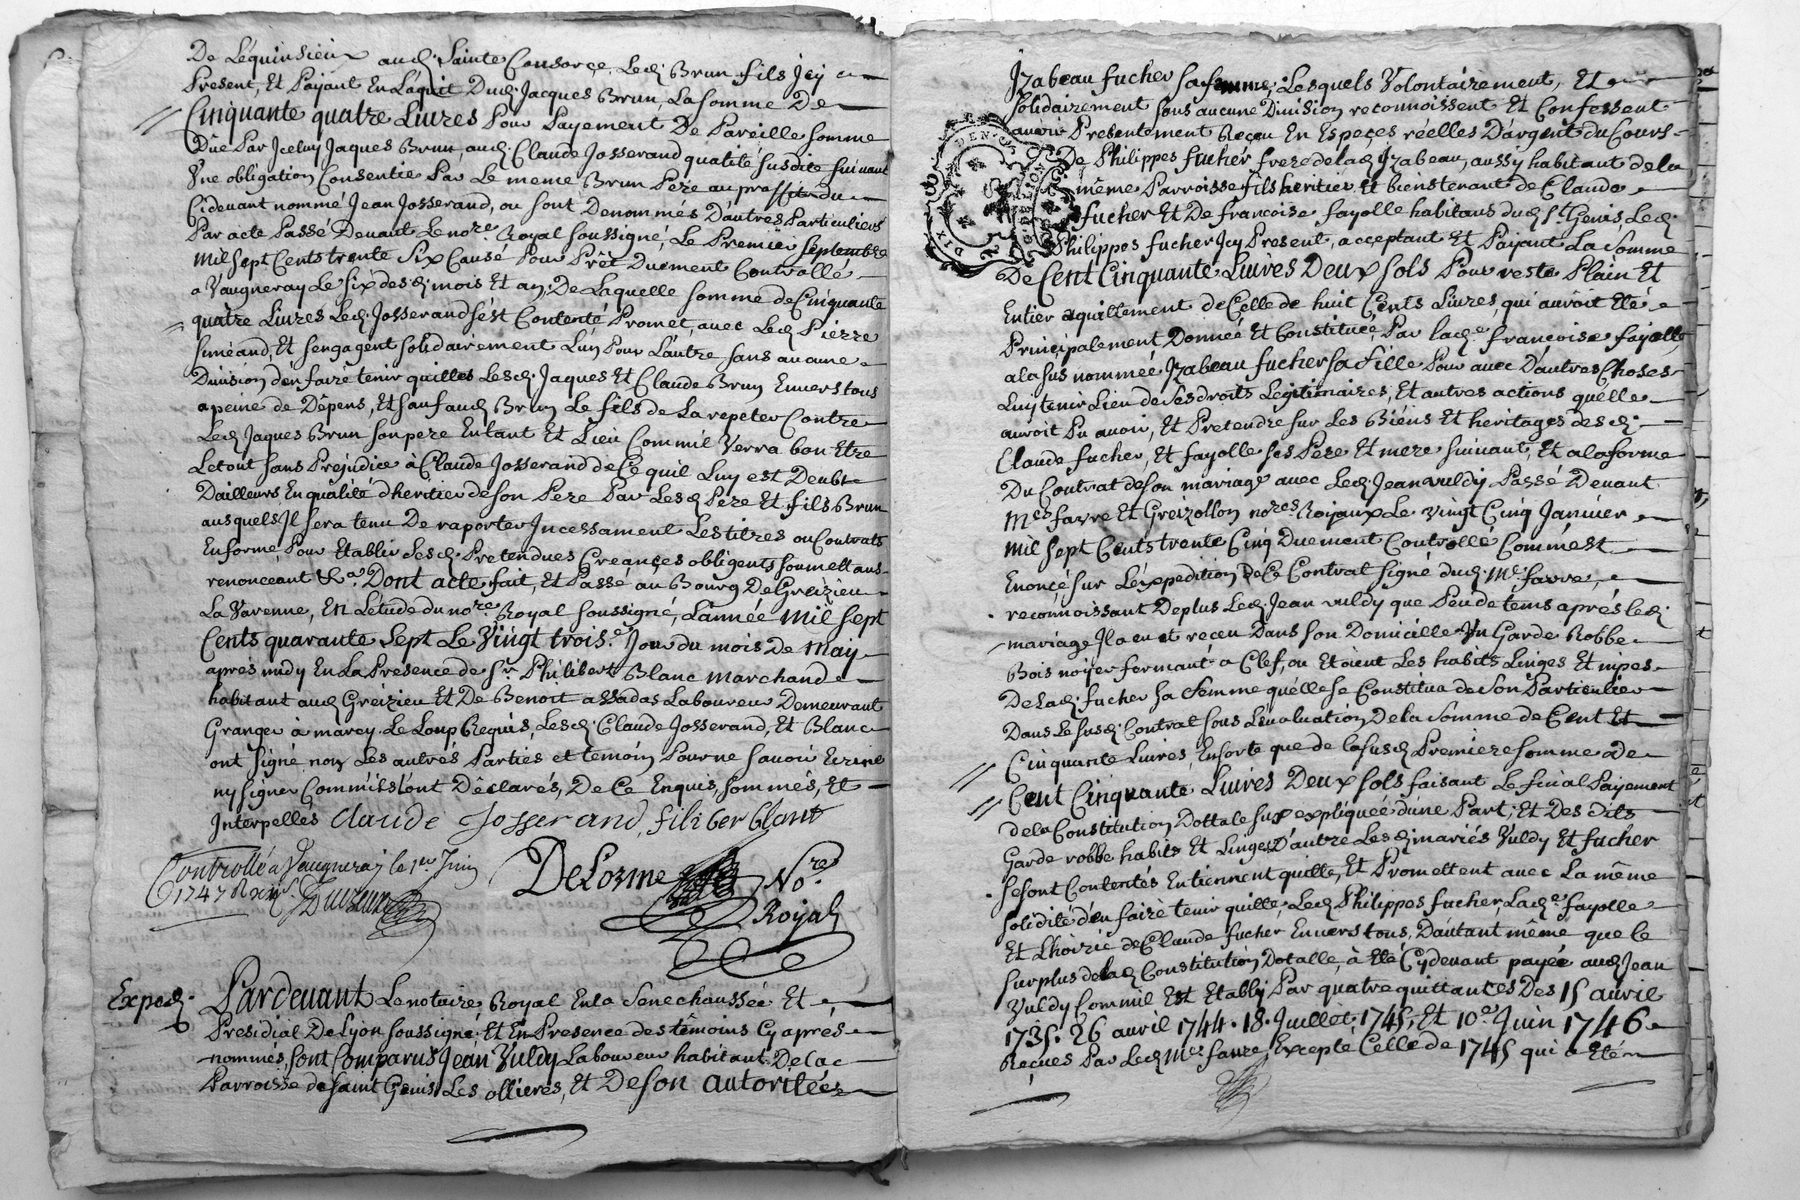 De Léquinsieux aud. Sainte Consorçe Led. Brun fils Jcy
Present, Et Payant En Láquit Dud. Jacques Brun, La Somme De
Cinquante quatre Livres Pour Payement De Pareille Somme
Dûe Par Jceluy Jaques Brun, aud. Claude Josserand qualité Susdite Suivant
Vne obligation Consentie Par Le meme Brun Pere au proffit du
Cidevant nommé Jean Josserand, ou Sont Denommés D'autres Particuliers
Par acte Passé Devant Le nore. Royal Soussigné, Le Premier Septembre
mil Sept Cents trente Six Causé Pour Prêt Duement Controllé
a Vaugneray Le Six desd. mois Et an, De Laquelle Somme de Cinquante
quatre Livres Led. Josserand S'ést Contenté Promet, avec Led. Pierre
Simeand, Et Sengagent Solidairement Lun Pour Láutre Sans aucune
Division d'en faire tenir quilles Lesd. Jaques Et Claude Brun Envers tous
a peine de Dêpens, Et Sauf aud. Brun Le fils de La repeter Contre
Led. Jaques Brun Son pere En tant Et Lieu Comm'il Verra bon Etre
Le tout Sans Prejudice à Claude Josserand de Ce quil Luy est Deub
Dailleurs En qualité d'heritier de son Pere Par Lesd. Pere Et fils Brun
ausquels Jl Sera tenu De raporter Jncessament Les titres ou Contrats
En forme Pour Etablir Sesd. Pretendues Creançes obligent, Soumettans
renonceant &a. Dont acte fait, Et Passé au Bourg De Greizieu
La Varenne, En L'étude du nore. Royal Soussigné, L'année mil Sept
Cents quarante Sept Le Vingt trois.e Jour du mois De May
aprés midy En La Presence de Sr. Philibert Blanc marchand
habitant aud. Greizieu Et De Benoit Laboureur Demeurant
Granger à marcy Le Loup Requis, Lesd. Claude Josserand, Et Blanc
ont Signé non Les autrés Parties et temoin Pour ne Savoir Ecrire
ny Signer Comm'ils L'ont Dêclarés, De Ce Enquis, Sommés, Et
Interpellés Claude Josserand, filiber blanc
Controllé a Vaugneray le 1er Juin
1747 Recu
DeLorme Nore.
Royal
Exped. Pardevant Le notaire Royal En la Senechaussée Et
Presidial De Lyon Soussigné, Et En Presence des têmoins Cy aprés
nommés, Sont Comparus Jean Vuldy Laboureur habitant De La
Parroisse de Saint Genis Les ollieres, Et De Son autorité
Jzabeau fucher Sa femme, Lesquels Volontairement, Et
Solidairement Sans aucune Division reconnoissent Et Confessent
avoir Presentement Reçeu En Espeçes réelles D'argent du Cours
De Philippes fucher frere de lad. Jzabeau, aussy habitant de la
même Parroisse fils heritier Et bienstenant de Claude
fucher Et De françoise fayolle habitans dud. St. Genis, Led.
Philippes fucher Jcy Present, acceptant Et Payant La Somme
De Cent Cinquante Livres Deux Sols Pour reste Plain Et
Entier aquittement de Celle de huit Cents Livres, qui auroit Eté
Principalement Donneé Et Constituée Par Lad.e françoise fayolle
a la Sus nommée Jzabeau fucher Sa fille Pour avec D'autres Choses
Luy tenir Lieu de Ses droits Legitimaires, Et autres actions quélle
auroit Pu avoir, Et Pretendre Sur Les Biéns Et heritages desd.
Claude fucher, Et fayolle Ses Pere Et mere Suivant, Et a la forme
Du Contrat de Son mariage avec Led. Jean Vuldy Passé Devant
Mes. favre Et Greizollon nores. Royaux Le Vingt Cinq Janvier
mil Sept Cents trente Cinq Duement Controllé Comm'est
Enoncé Sur Léxpedition De Ce Contrat Signé dud. Me. favre,
reconnoissant De plus Led. Jean Vuldy que Peu de tems aprés led.
mariage Jl a eu et receu Dans Son Domicille Vn Garde Robbe
Bois noyer fermant a Clef, ou Etoient Les habits Linges Et nipes
De Lad. fucher Sa femme quélle Se Constitua de Son Particulier
Dans Le Susd. Contrat Sous L'evaluation De la Sómme de Cent Et
Cinquante Livres, Ensorte que de la Susd. Premiere Somme De
Cent Cinquante Livres Deux Sols faisant Le final Payement
de la Constitution Dottale Sus expliqueé d'une Part, Et Des dits
Garde robbe habits Et Linges D'autre Lesd. mariés Vuldy Et fucher
Se Sont Contentés En tiennent quitte, Et Promettent avec La même
Solidité d'en faire tenir quitte, Led. Philippes fucher, Lad.e fayolle
Et L'hoirie de Claude fucher Envers tous, Dáutant même que le
Surplus de lad. Constitution Dotalle, à Eté Cydevant payeé aud. Jean
Vuldy Comm'il Est Etably Par quatre quittances Des 15 avril
1735. 26 avril 1744. 18. Juillet. 1745, Et 10e Juin 1746
Reçues Par Led. Me. favre, Excepté Celle de 1745 qui a Eté